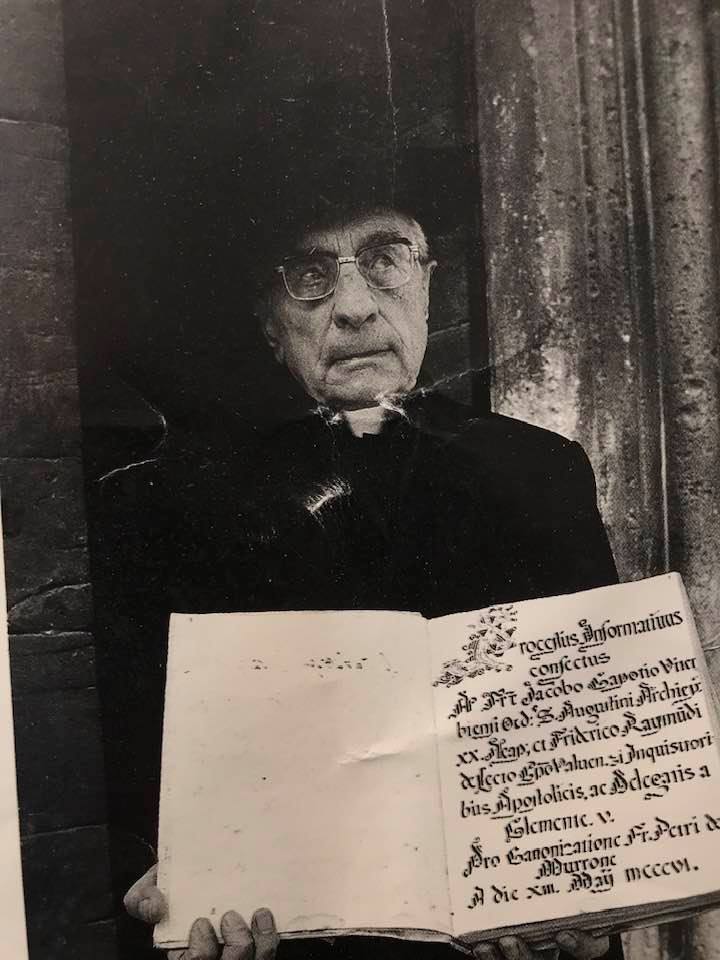 Processus Informativus
confectus
A Fr̄e Jacobo Capotio Viter
biensi Ord.ˢ S. Augustini Archiep.
XX. Neap, et Fridrico Raymūdi
de Lecto Epō Valuen.zi Inquisitori
bus Apostolicis, ac Delegatis a
Clemente. V.
Pro Canonizatione Fr. Petri de
Murrone
A die XIII. Maij MCCCVI.